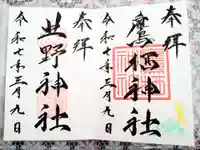 奉拝
鷹栖神社
令和七年三月九日
奉拝
野神社
令和七年三月九日